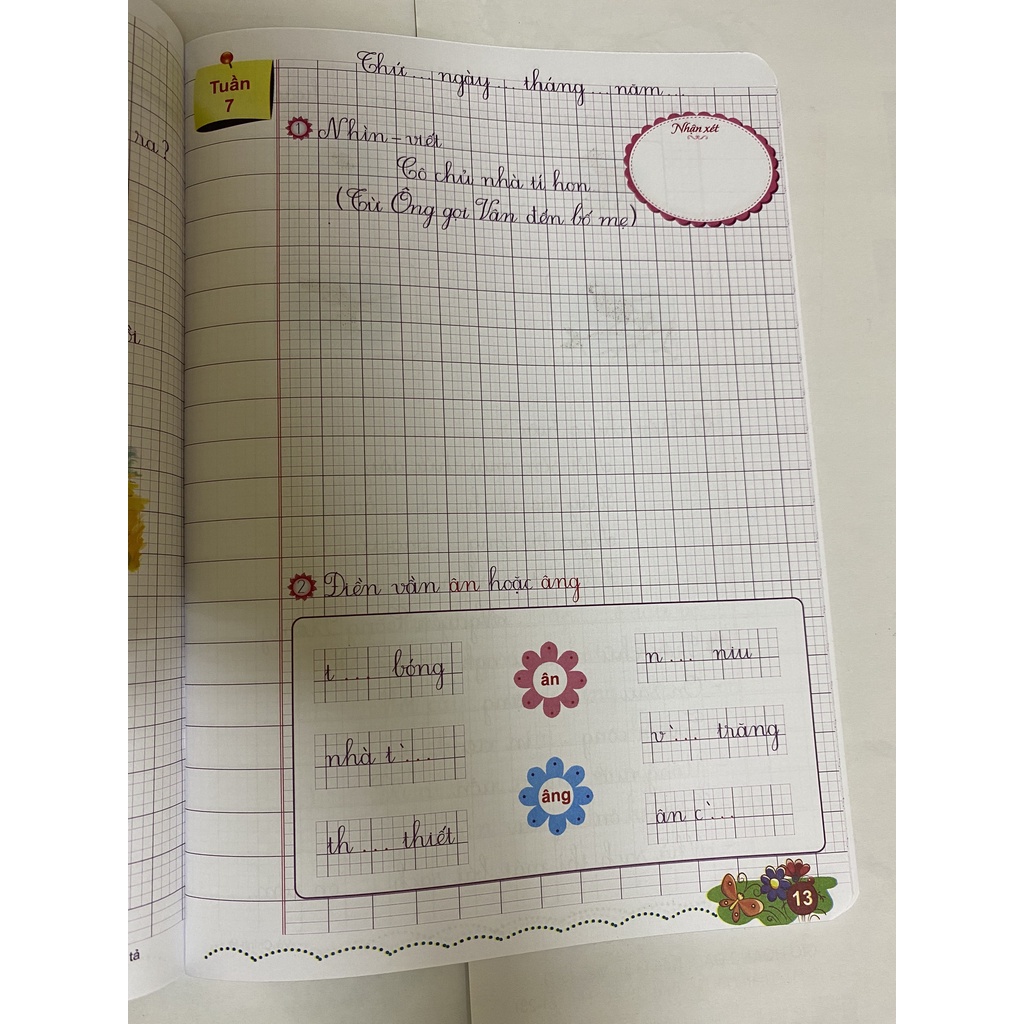 ra?
tả
Tuần
7
Thứ ... ngày ... tháng ... năm ...
Nhận xét
1 Nhìn - viết
Cô chủ nhà tí hon
(Từ Ông gọi Vân đến bố mẹ)
2 Điền vần ân hoặc âng
t ... bóng
ân
n ... niu
nhà t ̀ ...
âng
v ̀ ... trăng
th ... thiết
ân c ̀ ...
13